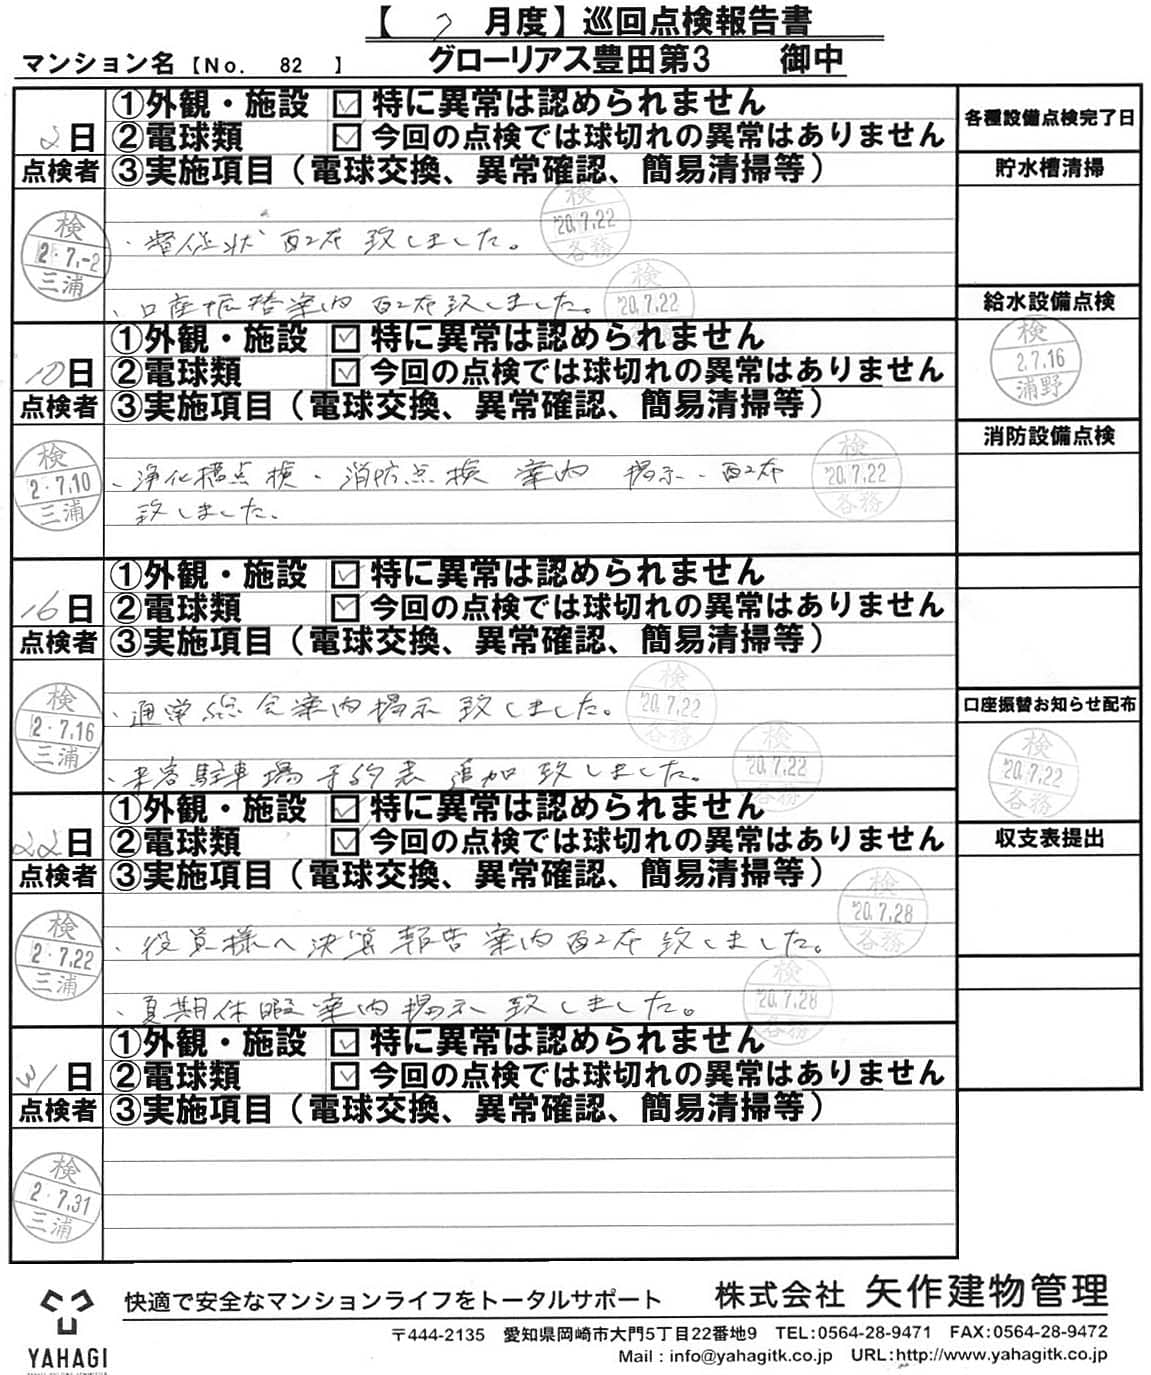 【 7 月度】巡回点検報告書
マンション名【No. 82 】 グローリアス豊田第3 御中
2日 ①外観・施設 ☑ 特に異常は認められません
②電球類 ☑ 今回の点検では球切れの異常はありません
点検者 ③実施項目（電球交換、異常確認、簡易清掃等）
検 2.7.-2 三浦
・督促状 配布 致しました。 検 '20.7.22 各務
・口座振替案内 配布致しました。 検 '20.7.22 各務
10日 ①外観・施設 ☑ 特に異常は認められません
②電球類 ☑ 今回の点検では球切れの異常はありません
点検者 ③実施項目（電球交換、異常確認、簡易清掃等）
検 2.7.10 三浦
・浄化槽点検・消防点検 案内 掲示・配布 検 '20.7.22 各務
致しました。
16日 ①外観・施設 ☑ 特に異常は認められません
②電球類 ☑ 今回の点検では球切れの異常はありません
点検者 ③実施項目（電球交換、異常確認、簡易清掃等）
検 2.7.16 三浦
・通常総会案内掲示 致しました。 検 '20.7.22 各務
・来客駐車場予約表 追加致しました。 検 '20.7.22 各務
22日 ①外観・施設 ☑ 特に異常は認められません
②電球類 ☑ 今回の点検では球切れの異常はありません
点検者 ③実施項目（電球交換、異常確認、簡易清掃等）
検 2.7.22 三浦
・役員様へ決算報告案内配布致しました。 検 '20.7.28 各務
・夏期休暇案内掲示致しました。 検 '20.7.28 各務
31日 ①外観・施設 ☑ 特に異常は認められません
②電球類 ☑ 今回の点検では球切れの異常はありません
点検者 ③実施項目（電球交換、異常確認、簡易清掃等）
検 2.7.31 三浦
各種設備点検完了日
貯水槽清掃
給水設備点検
検 2.7.16 浦野
消防設備点検
口座振替お知らせ配布
検 '20.7.22 各務
収支表提出
YAHAGI
快適で安全なマンションライフをトータルサポート 株式会社 矢作建物管理
〒444-2135 愛知県岡崎市大門5丁目22番地9 TEL:0564-28-9471 FAX:0564-28-9472
Mail : info@yahagitk.co.jp URL:http://www.yahagitk.co.jp